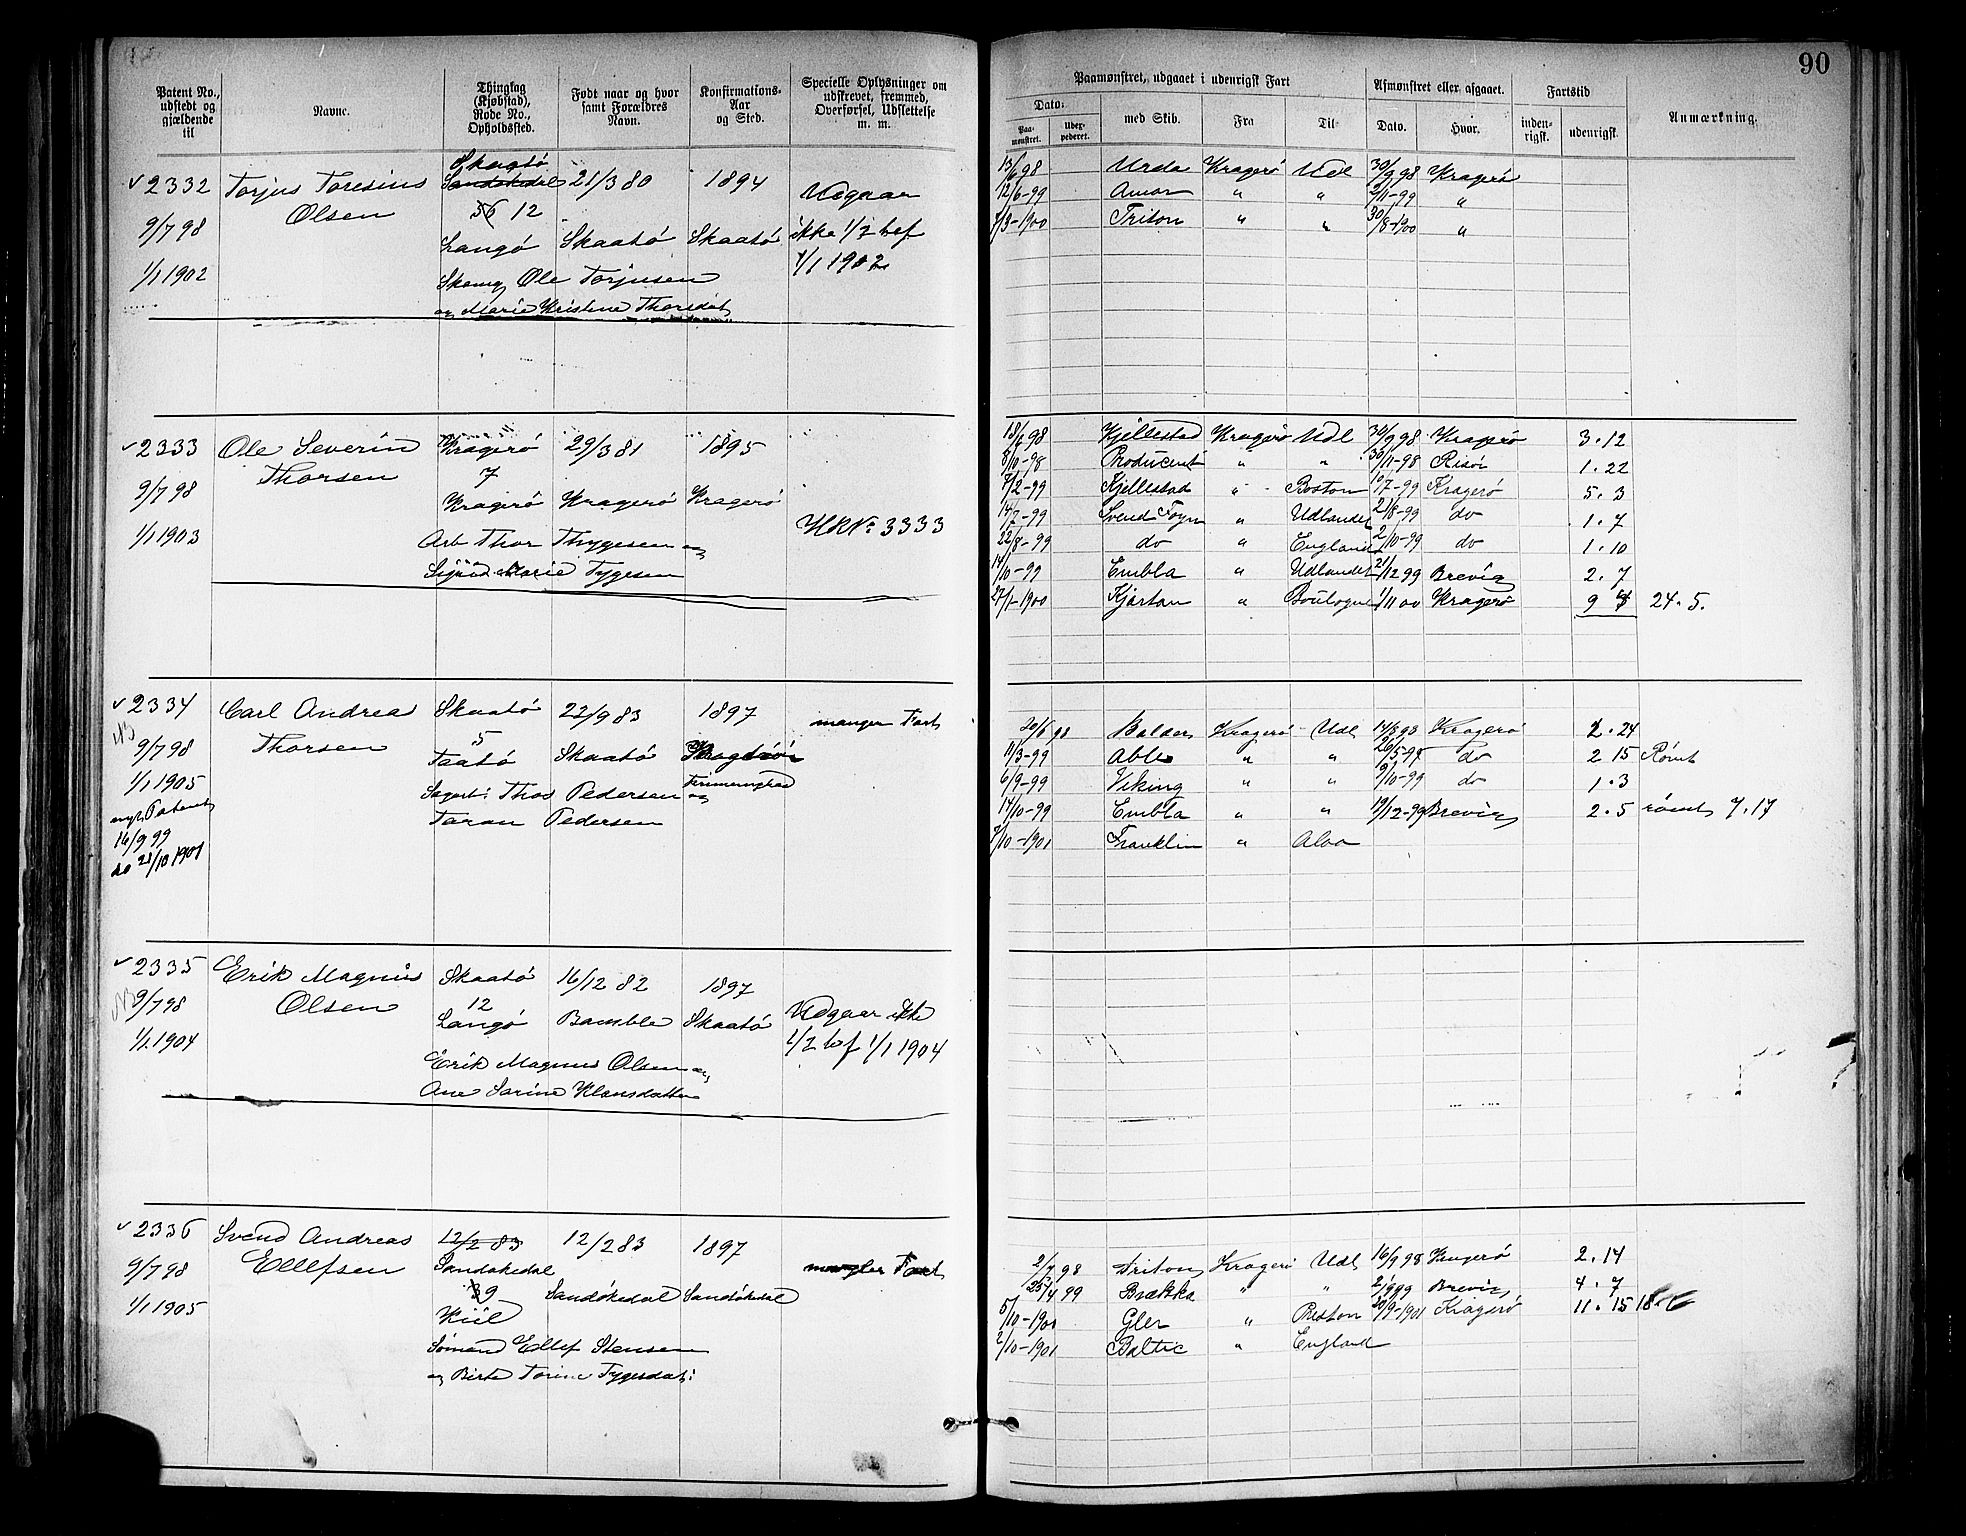 90
Patent No., udstedt og gjældende til
Navne.
Thinglag (Kjøbstad), Rode No., Opholdssted.
Født naar og hvor samt Forældres Navn.
Konfirmations-Aar og Sted.
Specielle Oplysninger om udskrevet, fremmed, Overførsel, Udslettelse m. m.
Paamønstret, udgaaet i udenrigsk Fart
Dato:
Paa-mønstret.
Uder-pederet.
med Skib.
Fra
Til
Afmønstret eller afgaaet.
Dato.
Hvor.
Fartstid
inden-rigsk.
udenrigsk.
Anmærkning.
2332 Torjus Toresius Skaatö Sandökedal 21/3 80 1894
Olsen 56 12 Udgaar
9/7 98 Langö Skaatö Skaatö ikke 1/2 bef
1/1 1902 1/1 1902
Ole Torjusen
og Marie Kristine Thorsdat
13/6 98 Urda Kragerö Udl 30/9 98 Kragerö
12/6-99 Amor " " 2/11-99 "
1/3-1900 Triton " " 30/8-1900 "
2333 Ole Severin Kragerö 29/3 81 1895
Thorsen 7
9/7 98 Kragerö Kragerö Kragerö
1/1 1903 HRNo 3333
Arb Thor Thygesen og
Marie Tygesen
18/6 98 Kjellestad Kragerö Udl 30/9 98 Kragerö 3.12
8/10-98 Producent " " 30/11-98 Risör 1.22
7/2-99 Kjellestad " Boston 10/7-99 Kragerö 5.3
14/7-99 Svend Foyn " Udlandet 21/8-99 do 1.7
22/8-99 do " England 2/10-99 do 1.10
14/10-99 Embla " Udlandet 21/12 99 Brevig 2.7
27/1-1900 Kjartan " Boulogne 1/11 00 Kragerö 9 24.5.
2334 Carl Andrea Skaatö 22/9 83 1897 manger Fart
Thorsen 5
9/7 98 Taatö Skaatö
1/1 1905 Thos Pedersen og
nyt Patent Taran Pedersen
16/9 99
do 21/10 1901
20/6 98 Balder Kragerö Udl 14/8 93 Kragerö 2.24
11/3-99 Able " " do 2 15 Rømt
6/9-99 Viking " " 9/10-99 do 1.3
14/10-99 Embla " " 19/12-99 Brevig 2.5 rømt 7.17
/10-1901 Franklin " Aloa
2335 Erik Magnus Skaatö 16/12 82 1897
9/7 98 Olsen 12 Udgaar ikke
1/1 1904 Langö Bamble Skaatö 1/2 bef 1/1 1904
Erik Magnus Olsen og
Ane Sarine Klausdatter
2336 Svend Andreas 12/2 83 12/2 83 1897 mangler Fart
Ellefsen Sandökedal
9/7 98 39 Sandökedal Sandökedal
1/1 1905 Kiil
Sömand Ellef Stensen
og Birte Torine Tygesdat:
2/7 98 Triton Kragerö Udl 16/9 98 Kragerö 2.14
25/4 99 Brækka " " 2/9 99 Brevig 4.7
5/10-1900 Gler " Preston 20/9-1901 Kragerö 11.15
2/10-1901 Baltic " England